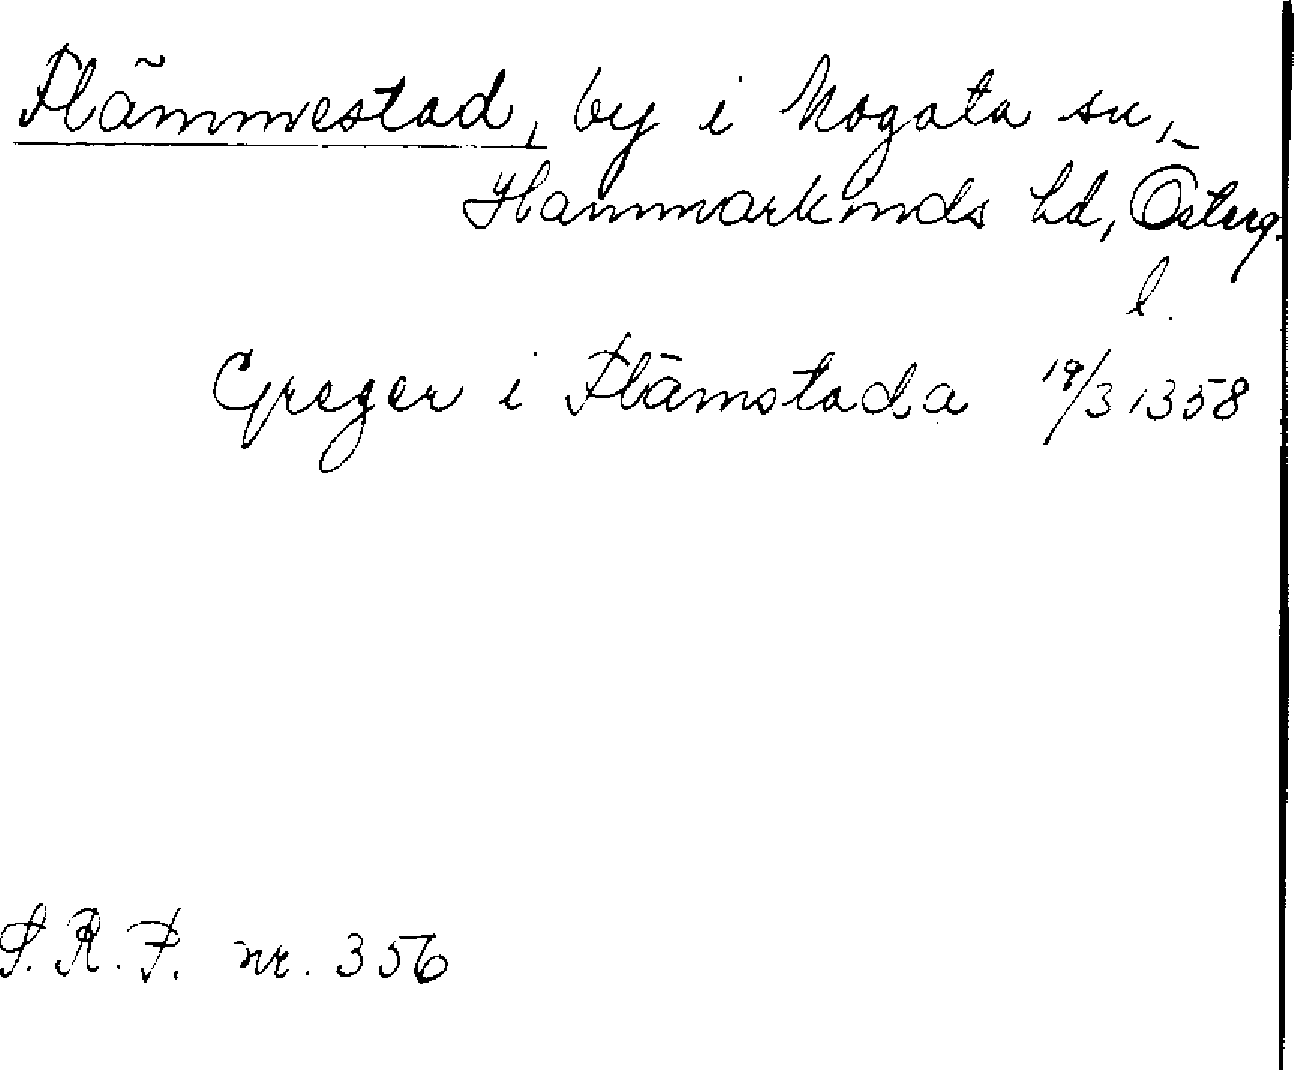 Flämmestad, by i Mogata sn,
Hammarkinds hd, Österg.
l.
Greger i Flämstada 19/3 1358
S.R.P. nr. 356